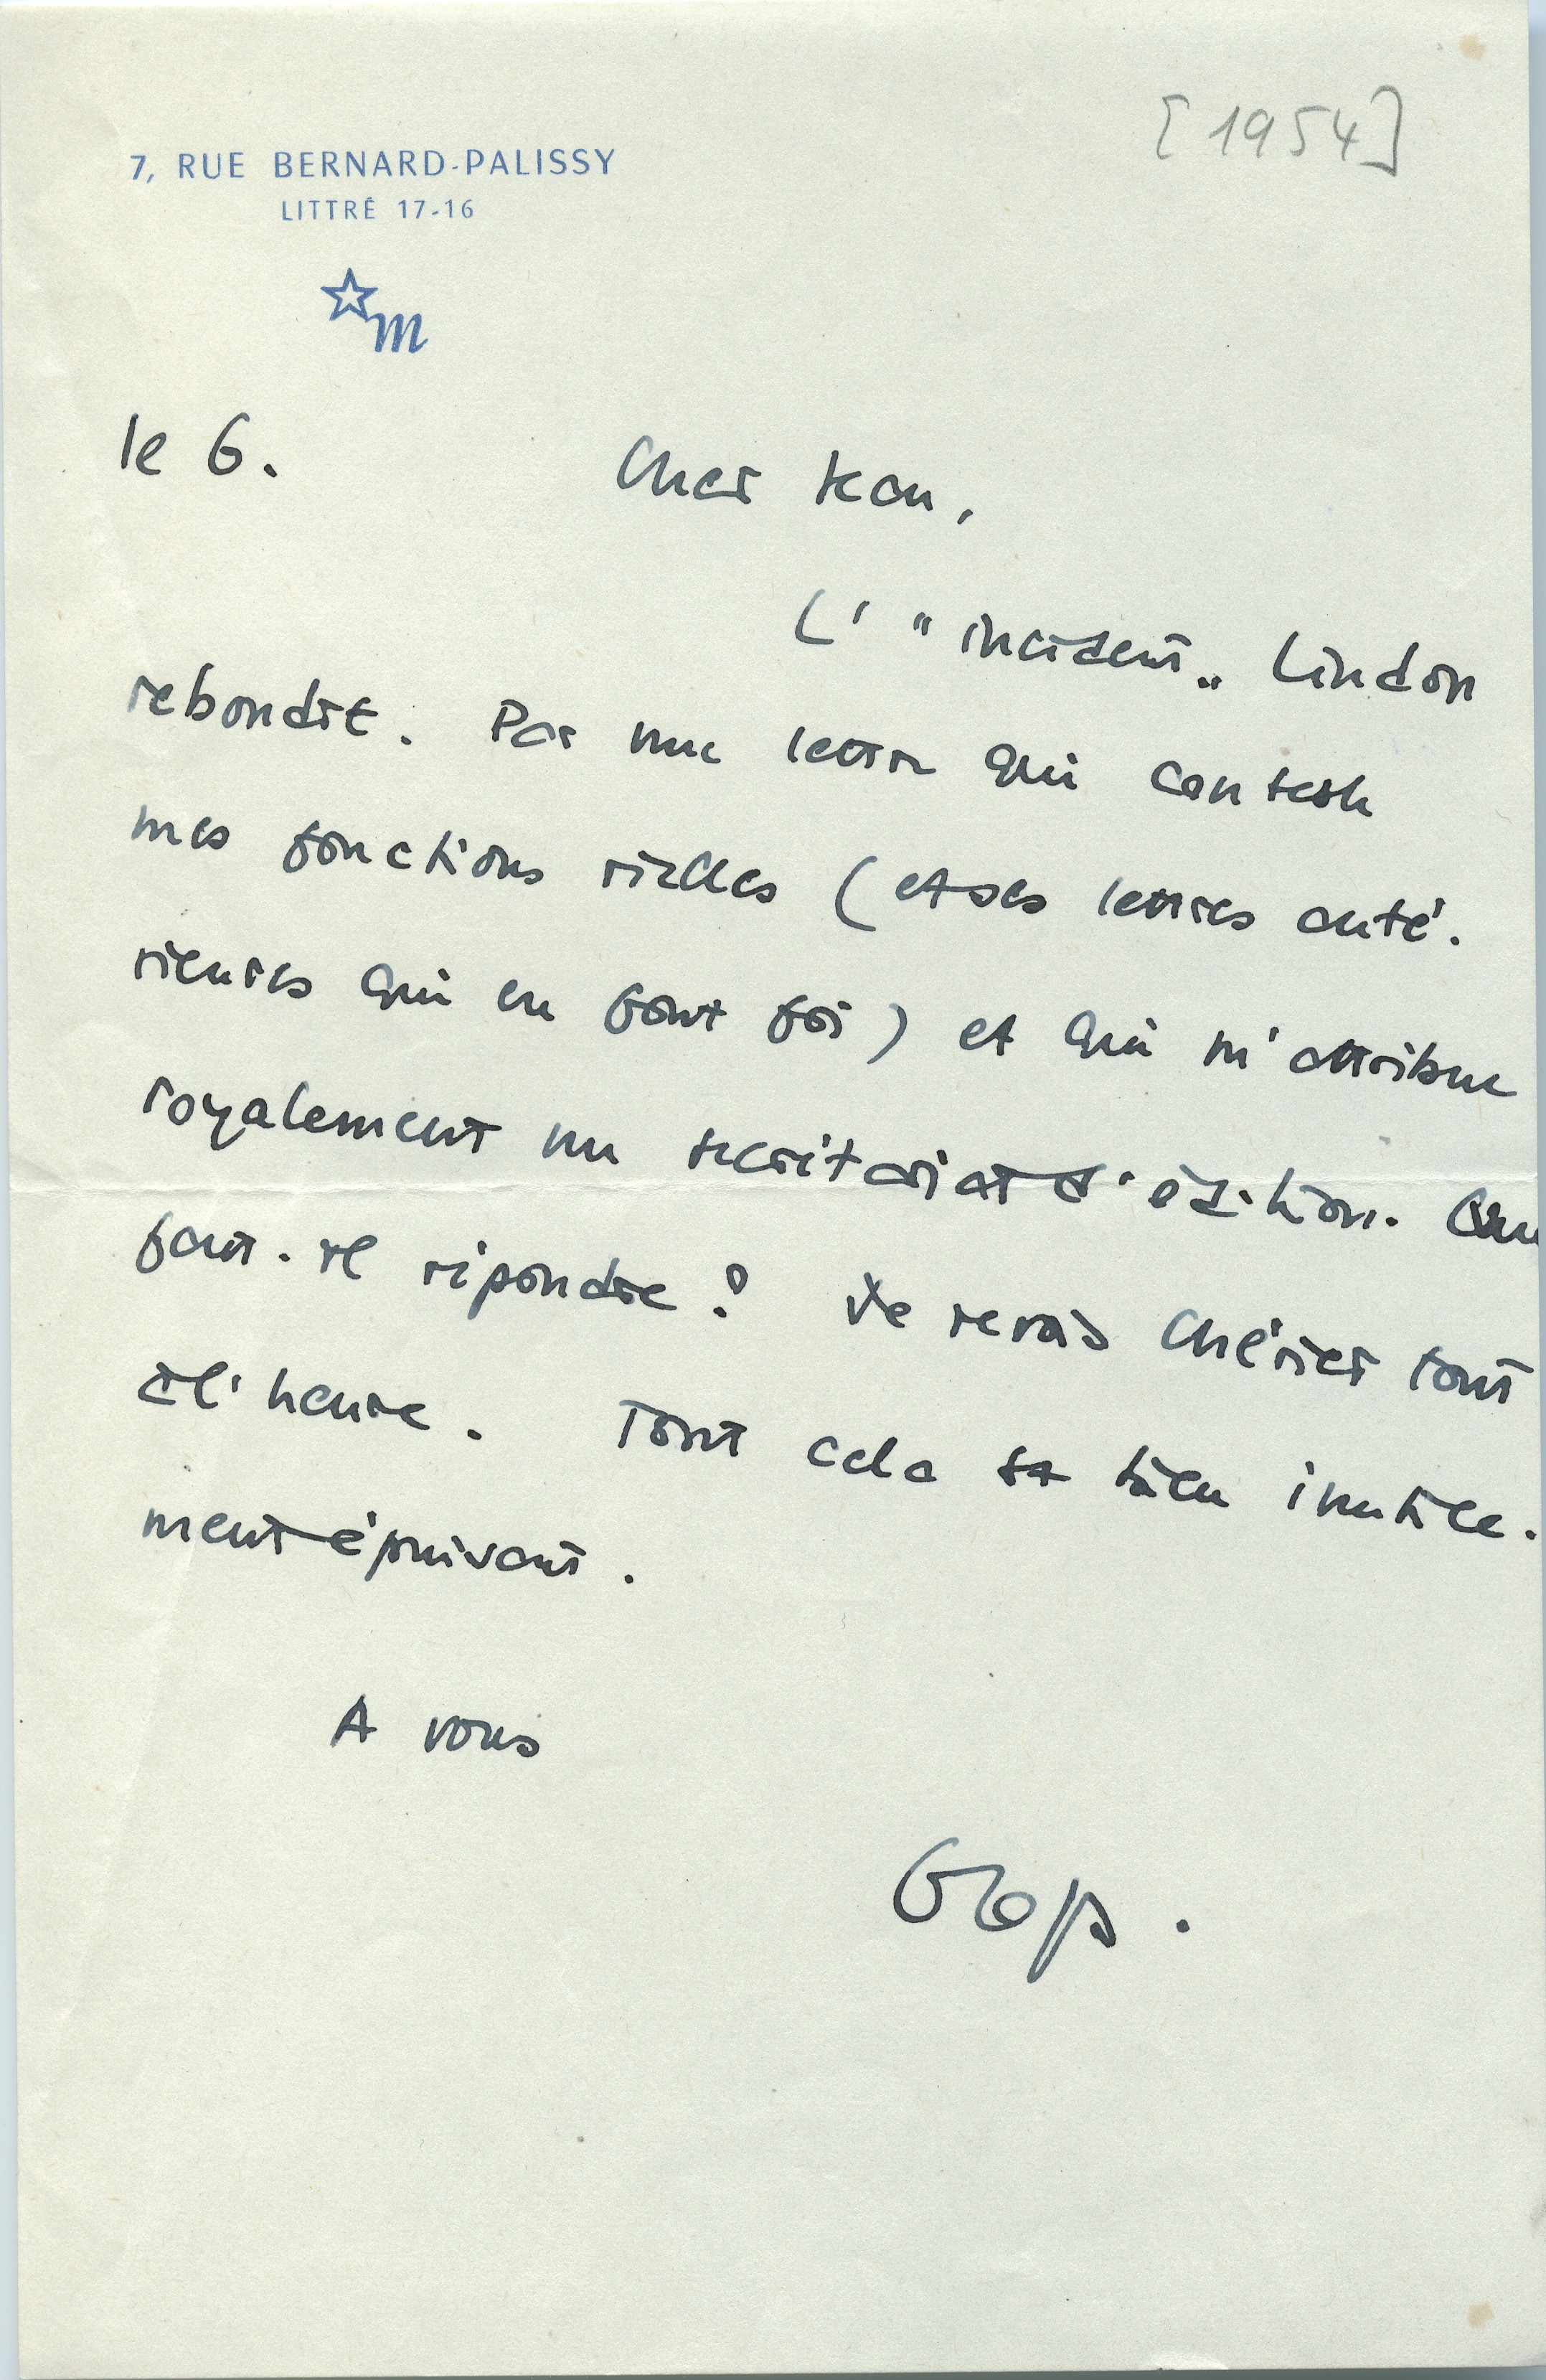 [1954]
7, RUE BERNARD-PALISSY
LITTRÉ 17-16
m
le 6.
Cher Jean,
L' "incident" Lindon
rebondit. Par une lettre qui conteste
mes fonctions réelles (et ses lettres anté-
rieures qui en font foi) et qui m'attribue
royalement un secrétariat d'édition. Que
faut-il répondre ? Je revois Chérier tout
à l'heure. Tout cela est bien inutile-
ment épuisant.
A vous